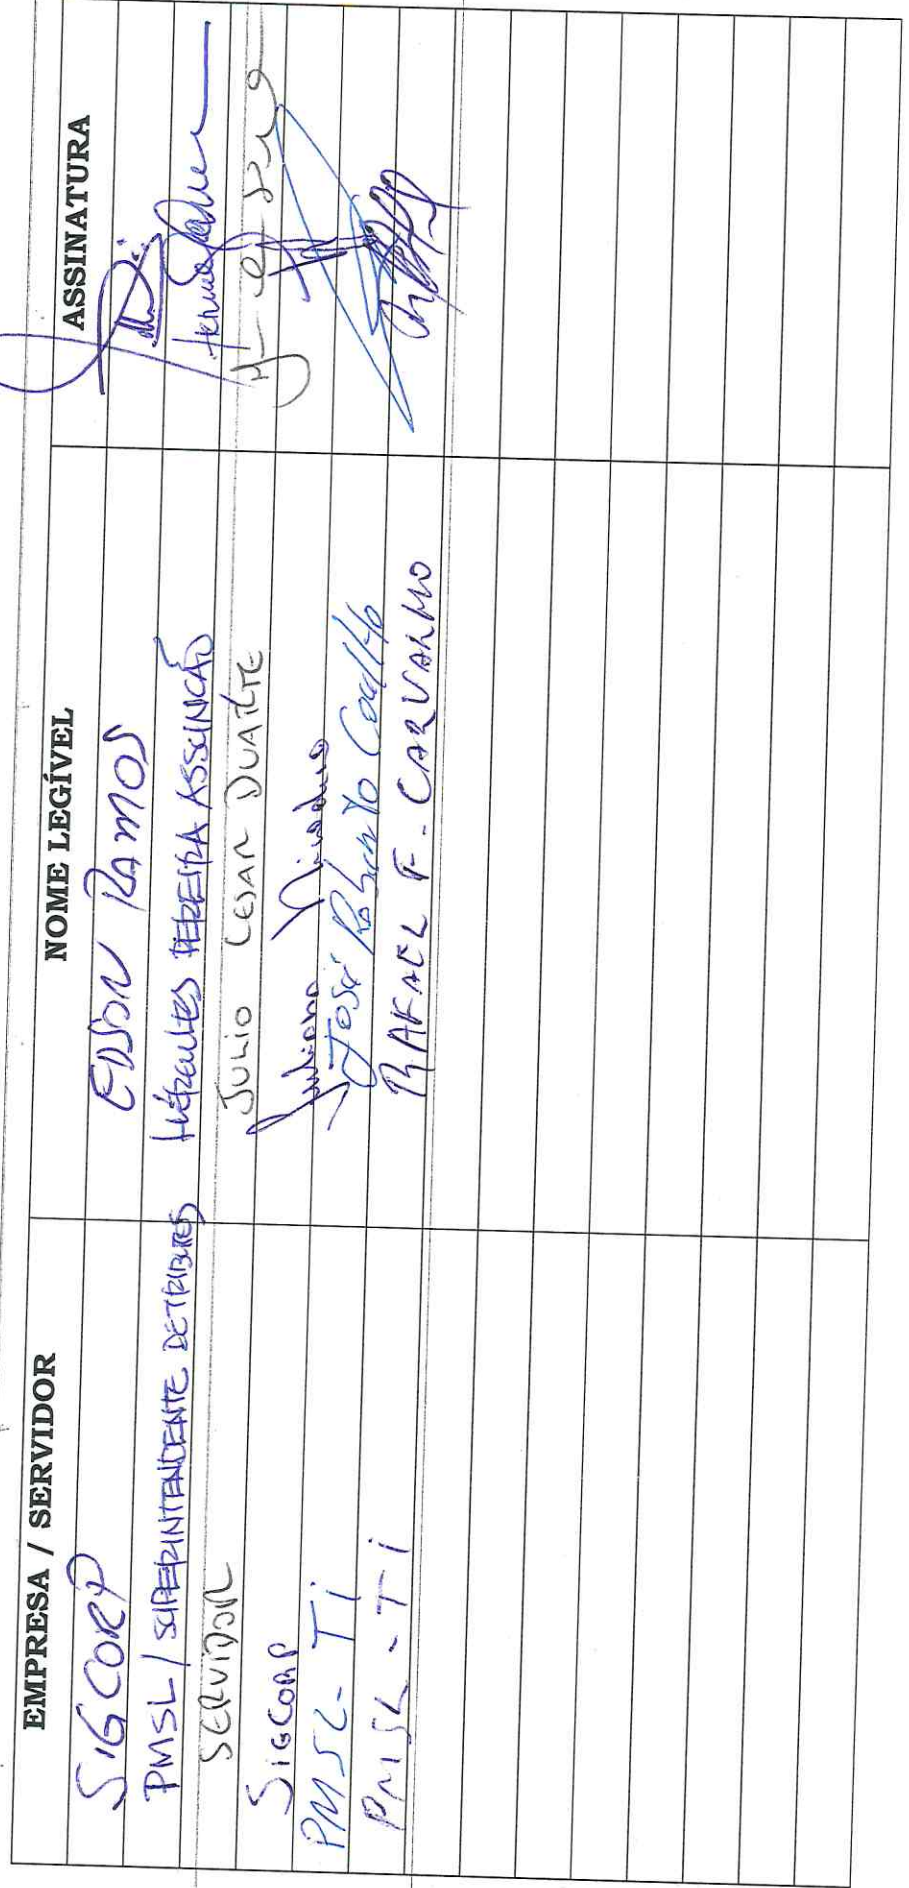 EMPRESA / SERVIDOR NOME LEGÍVEL ASSINATURA
SIGCORP EDSON RAMOS
PMSL / SUPERINTENDENTE DE TRIBUTOS HÉRCULES PEREIRA ASSUNÇÃO
SERVIDOR JULIO CESAR DUARTE
SIGCORP Juliano
PMSL - Ti José Roberto Coelho
PMSL - Ti RAFAEL F. CARVALHO